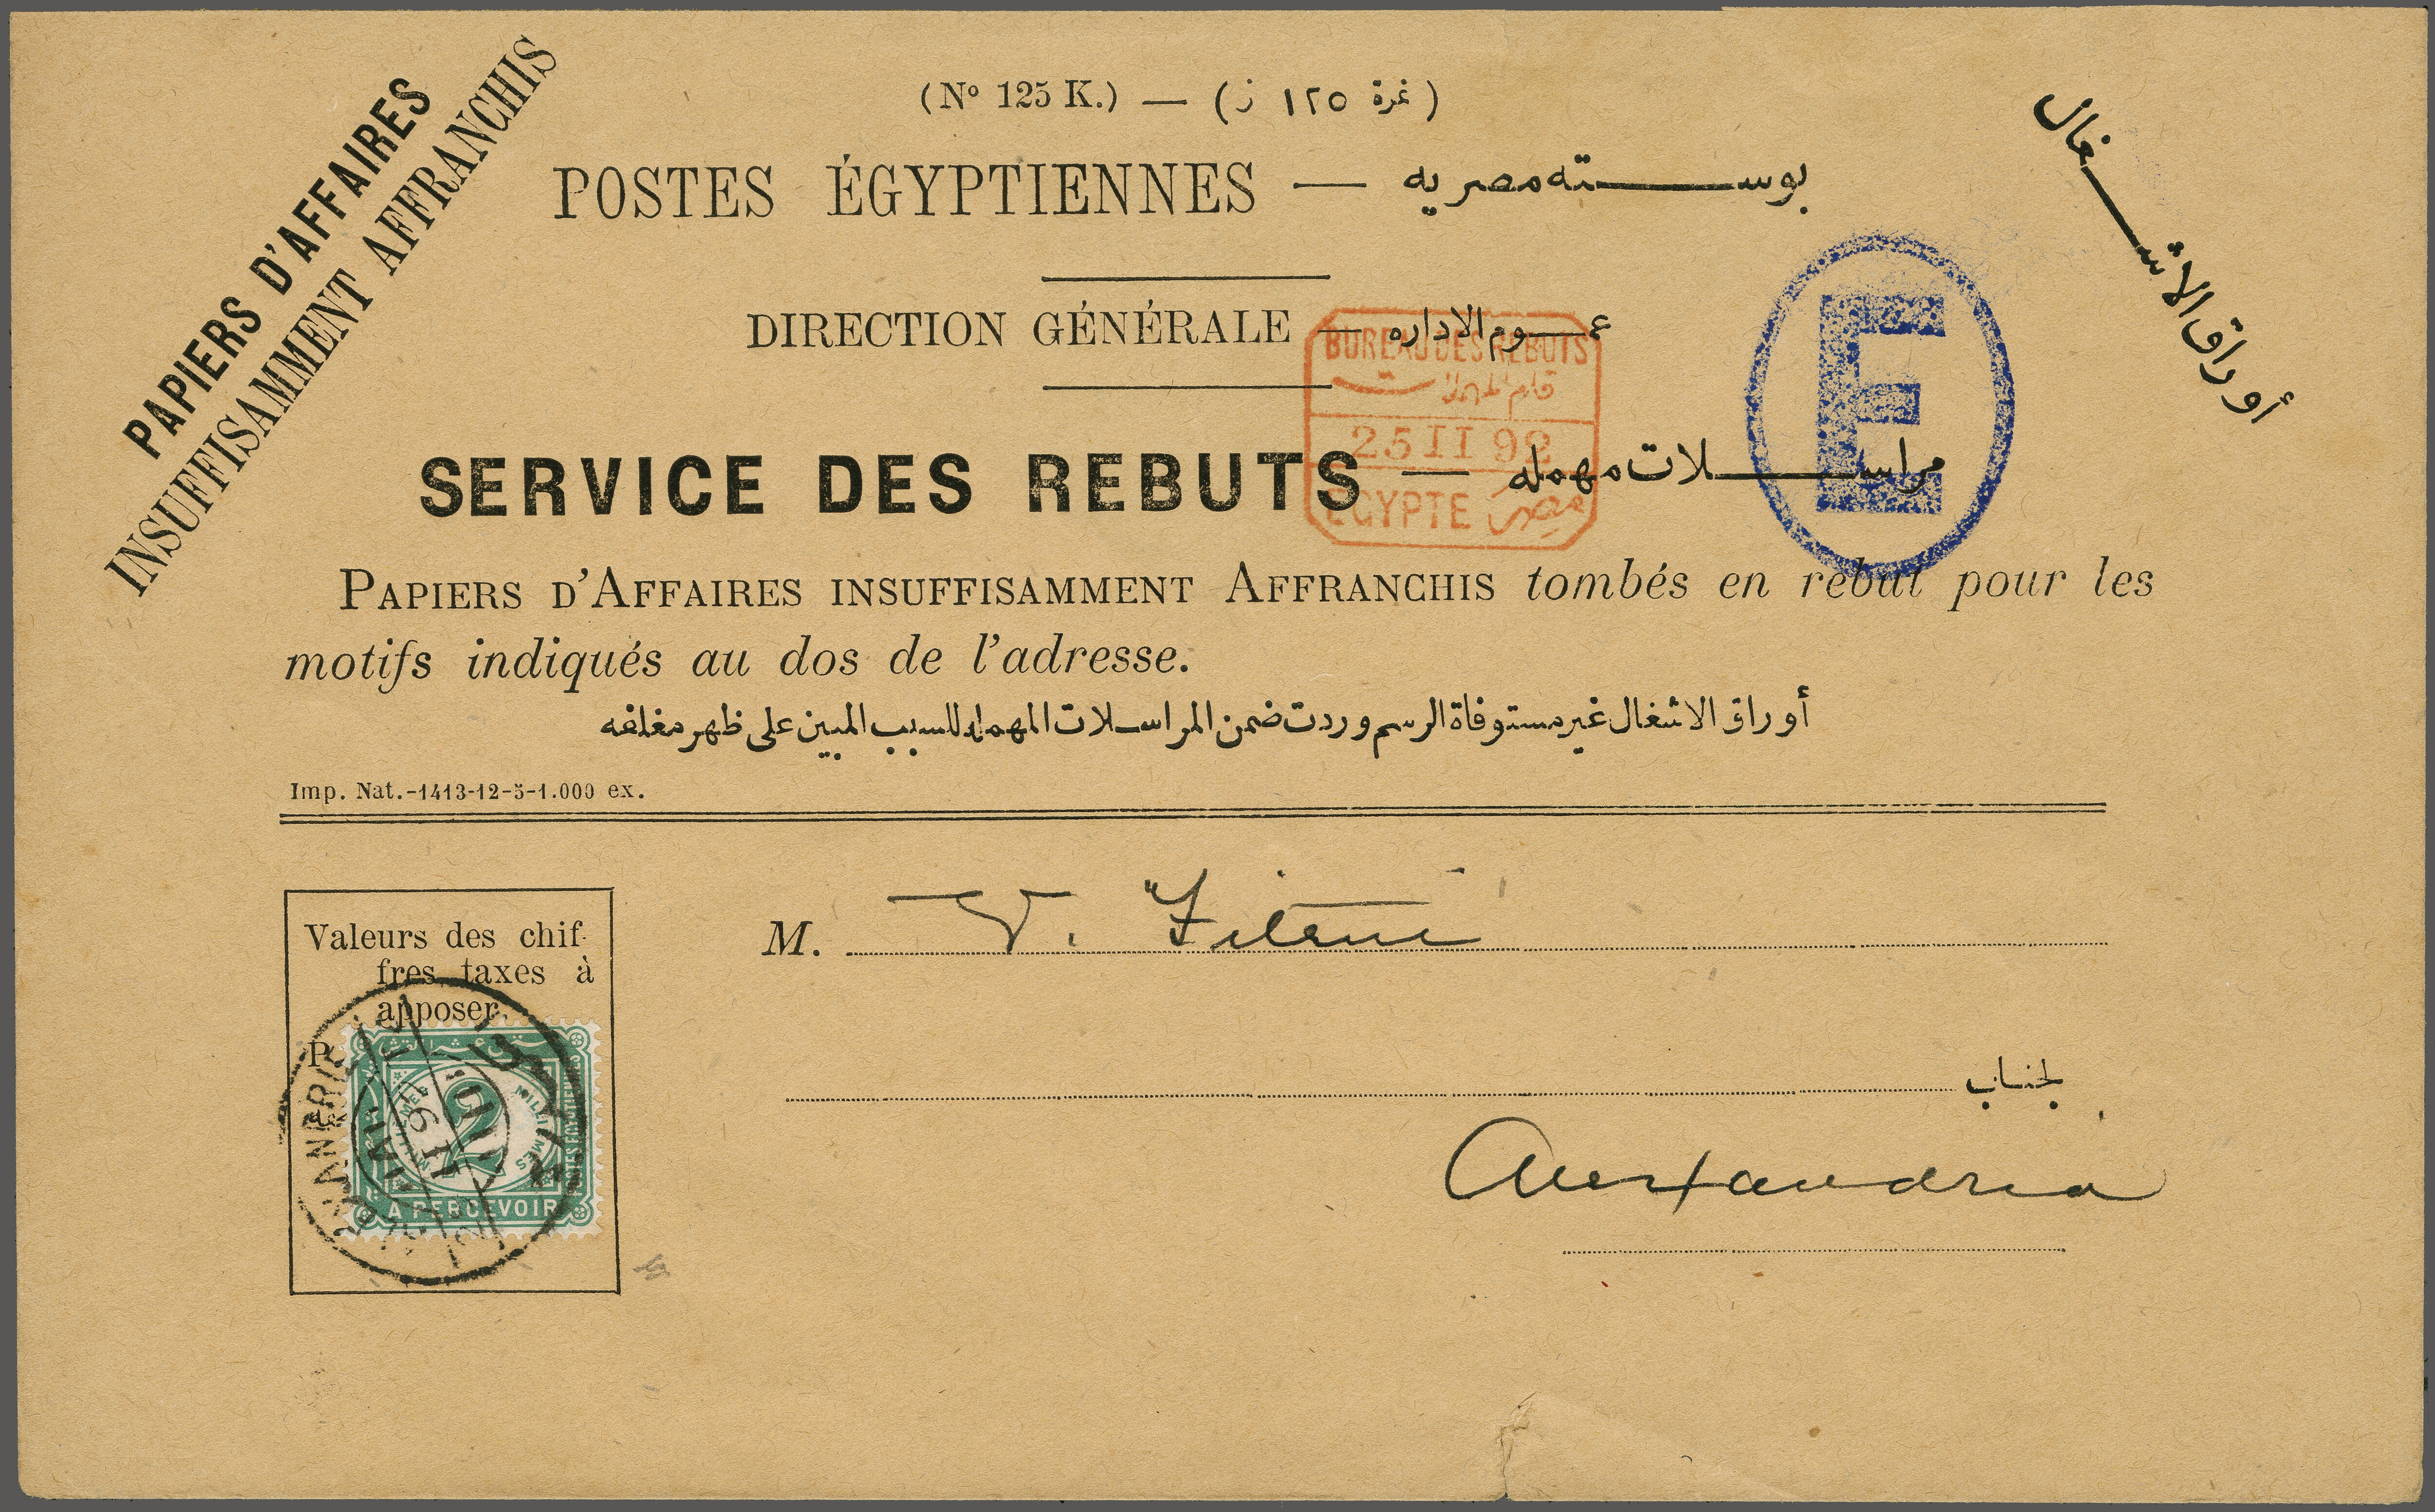 PAPIERS D'AFFAIRES
INSUFFISAMMENT AFFRANCHIS
(Nº 125 K.) — (نمرة ١٢٥ ز)
أوراق الاشغال
POSTES ÉGYPTIENNES — بوسته مصريه
DIRECTION GÉNÉRALE — عموم الاداره
BUREAU DES REBUTS
25 II 92
EGYPTE مصر
E
SERVICE DES REBUTS — مراسلات مهمله
PAPIERS D'AFFAIRES INSUFFISAMMENT AFFRANCHIS tombés en rebut pour les
motifs indiqués au dos de l'adresse.
أوراق الاشغال غير مستوفاة الرسم وردت ضمن المراسلات المهمله للسبب المبين على ظهر مغلفه
Imp. Nat.-1413-12-5-1.000 ex.
Valeurs des chif-
fres taxes à
apposer.
P.
2
MILLIEMES
A PERCEVOIR
M. V.
لجناب
Alexandria